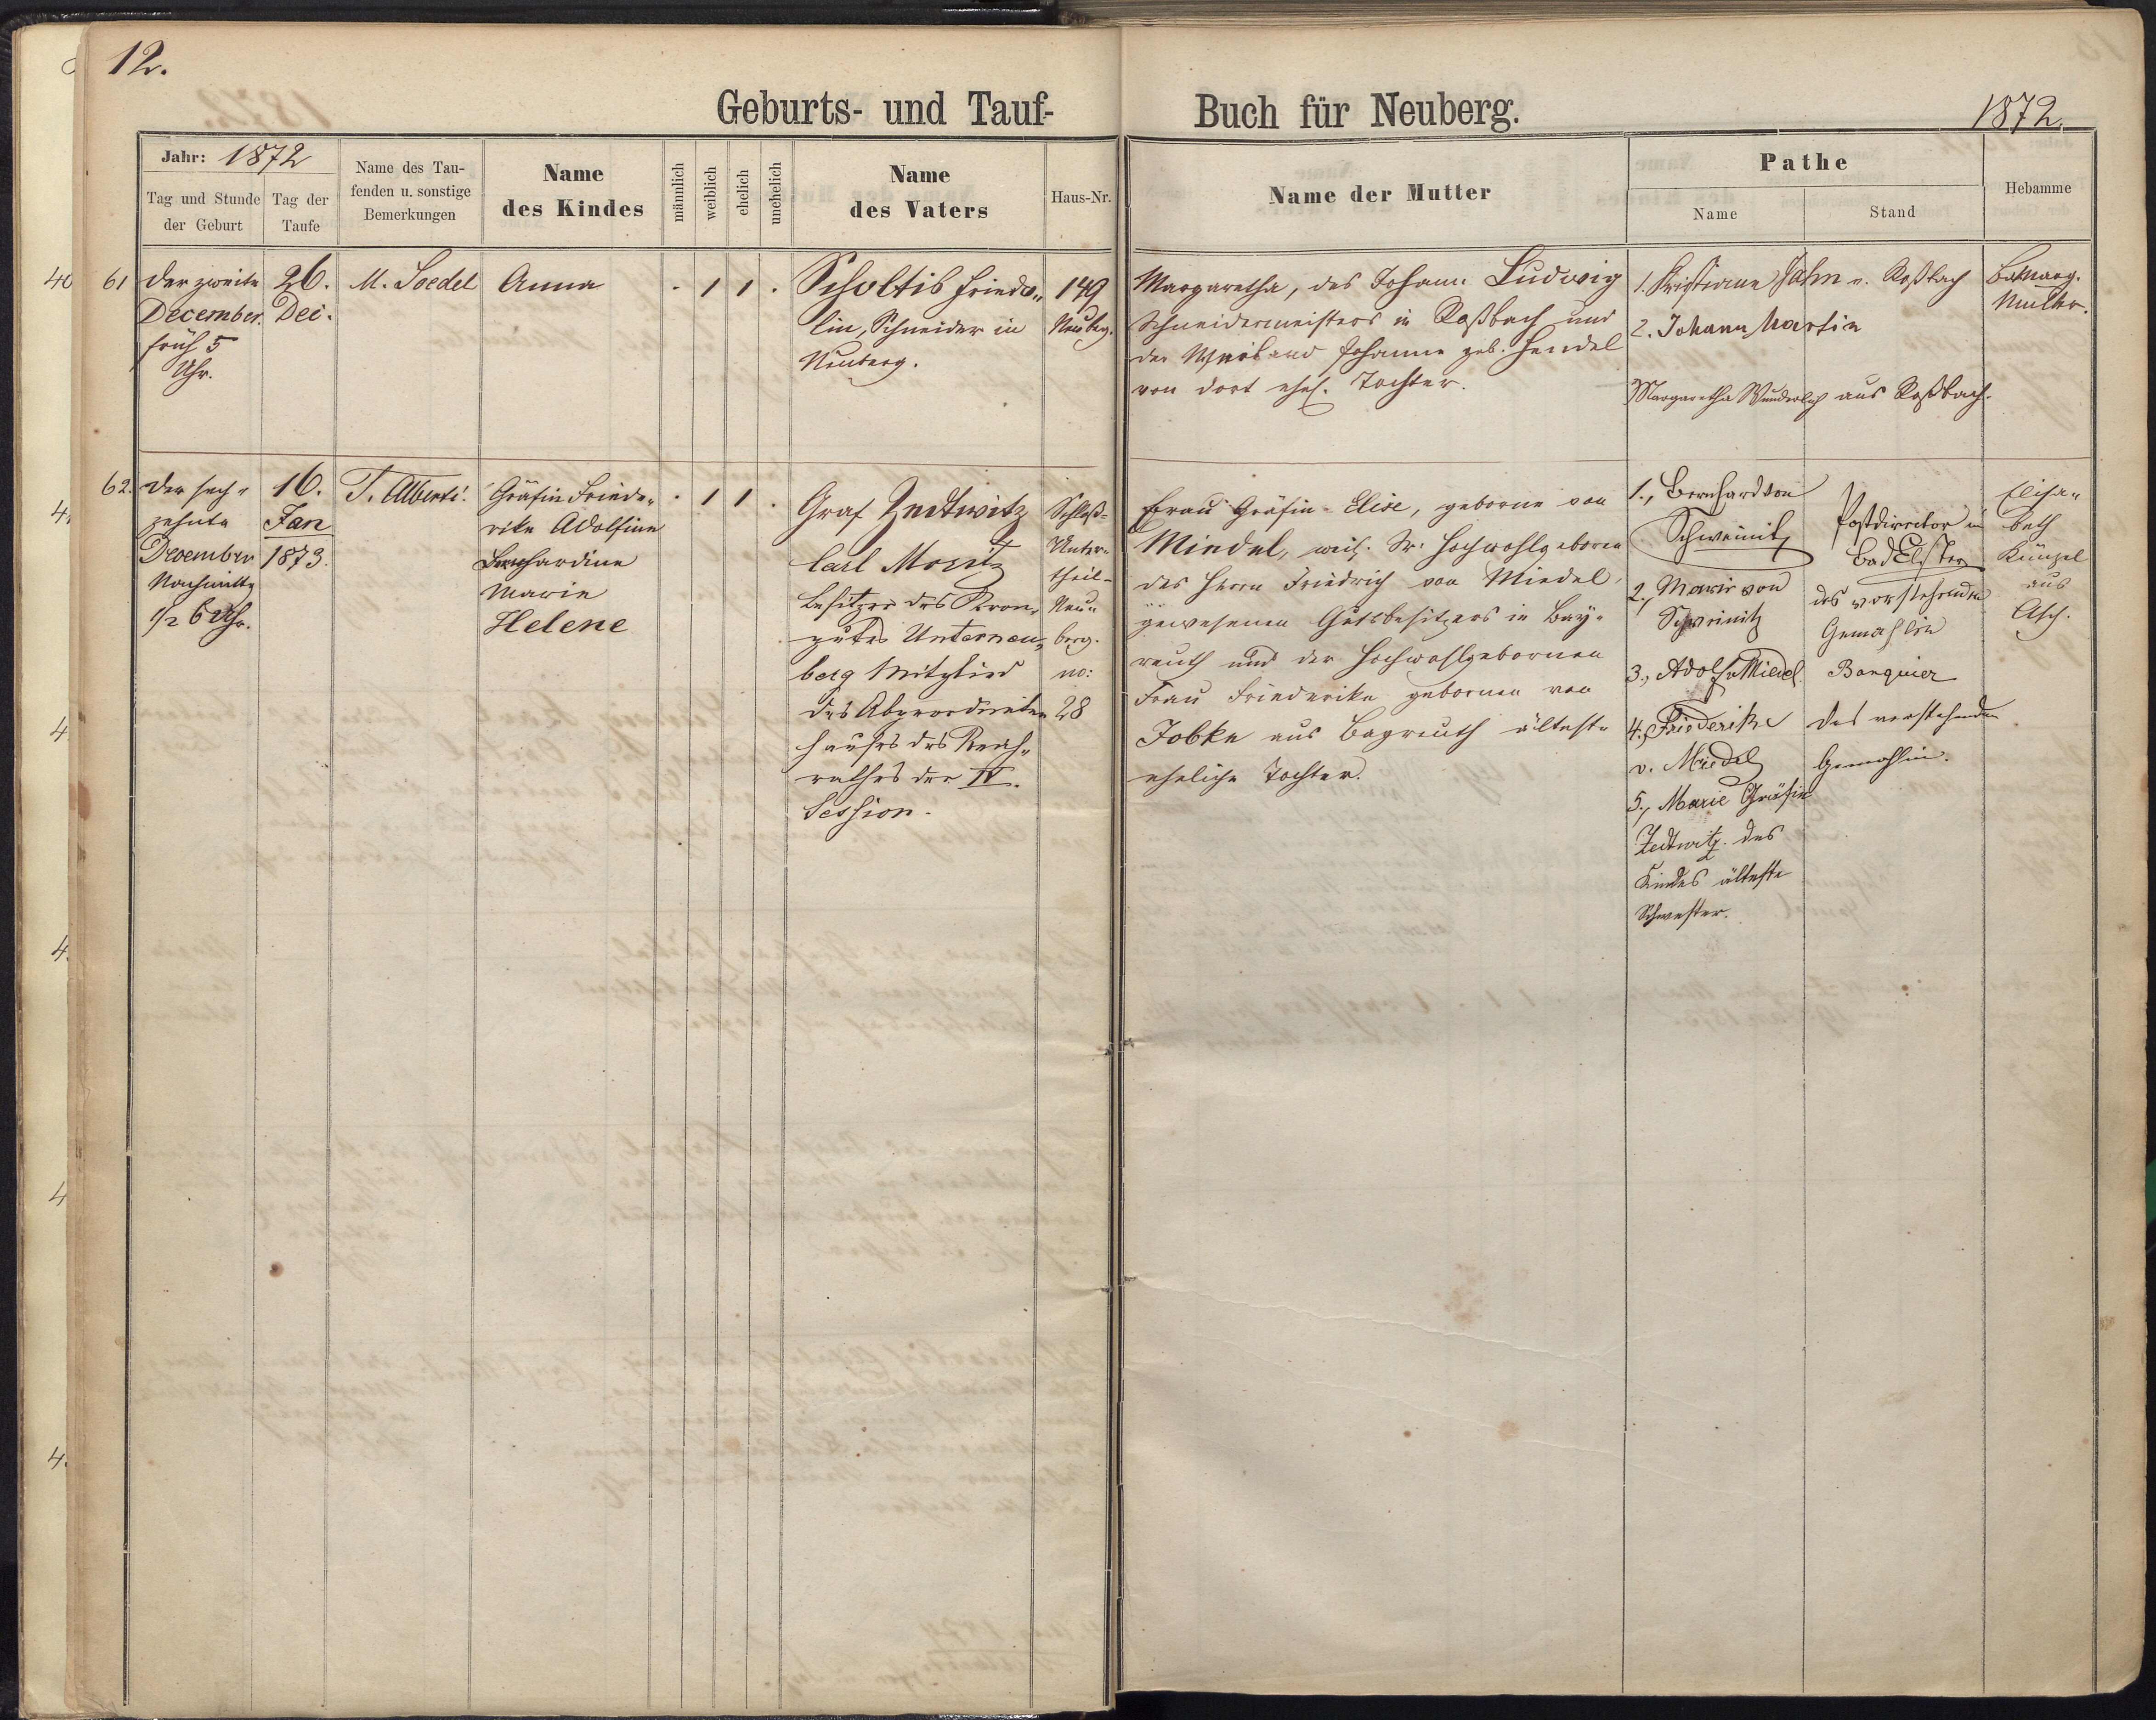 12.
Geburts- und Tauf-
Buch für Neuberg.
1872.
Jahr: 1872
Tag und Stunde
der Geburt
Tag der
Taufe
Name des Tau-
fenden u. sonstige
Bemerkungen
Name
des Kindes
männlich
weiblich
ehelich
unehelich
Name
des Vaters
Haus-Nr.
Name der Mutter
Pathe
Name
Stand
Hebamme
61
Der zweite
December.
früh 5
Uhr.
26.
Dec.
M. Soedel
Anna
. 1 1 .
Scholtis Frido-
lin, Schneider in
Neuberg.
149
Neuberg.
Margaretha, des Johann Ludwig
Schneidermeisters in Roßbach und
der Johanna geb. Hendel
von dort ehel. Tochter.
1. Kristiane Jahn v. Roßbach
2. Johann Martin
Margaretha Wunderlich aus Roßbach.
Marg.
62.
Der sech-
zehnte
December
Nachmittg
1/2 6 Uhr.
16.
Jan
1873.
T. Alberti.
Gräfin Friede-
rike Adolfine
Bernhardine
Marie
Helene
. 1 1 .
Graf Zedtwitz
Carl Moritz
Besitzer des Kron-
gutes Unterneu-
berg Mitglied
des Abgeordneten
hauses des Reichs-
rathes der IV.
Session.
Schloß-
Unter-
theil-
Neu-
berg.
no:
28
Frau Gräfin Elise, geborne von
Miedel, weil. Sr. Hochwohlgeboren
des Herrn Friedrich von Miedel,
gewesenen Gutsbesitzers in Bay-
reuth und der Hochwohlgebornen
Frau Friederike gebornen von
Jobke aus Bayreuth älteste
eheliche Tochter.
1., Bernhard von
Schweinitz
2., Marie von
Schweinitz
3., Adolf v. Miedel
4., Friederike
v. Miedel
5., Marie Gräfin
Zedtwitz des
Kindes älteste
Schwester.
Postdirector in
Bad Elster
des vorstehenden
Gemahlin
Banquier
des vorstehenden
Gemahlin.
Elisa-
beth
Künzel
aus
Asch.